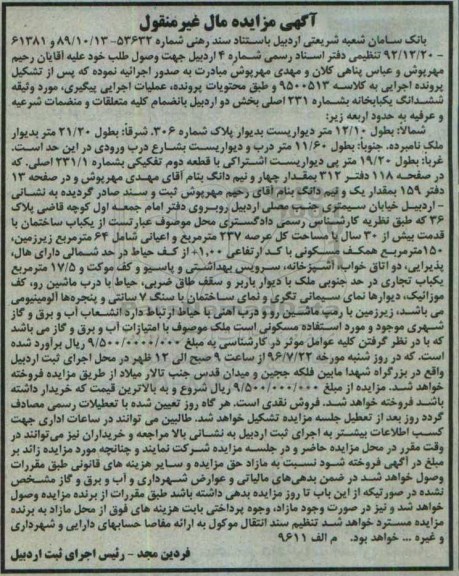 آگهی مزایده مال غیرمنقول
بانک سامان شعبه شریعتی اردبیل باستناد سند رهنی شماره ۵۳۶۳۲-۸۹/۱۰/۱۳ و ۶۱۳۸۱
- ۹۲/۱۲/۲۰ تنظیمی دفتر اسناد رسمی شماره ۴ اردبیل جهت وصول طلب خود علیه آقایان رحیم
مهرپوش و عباس پناهی کلان و مهدی مهرپوش مبادرت به صدور اجرائیه نموده که پس از تشکیل
پرونده اجرایی به کلاسه ۹۵۰۰۵۱۳ و طبق محتویات پرونده، عملیات اجرایی پیگیری، مورد وثیقه
ششدانگ یکبابخانه بشماره ۲۳۱ اصلی بخش دو اردبیل بانضمام کلیه متعلقات و منضمات شرعیه
و عرفیه به حدود اربعه زیر:
شمالا: بطول ۱۲/۱۰ متر دیواریست بدیوار پلاک شماره ۳۰۶، شرقا: بطول ۲۱/۲۰ متر بدیوار
ملک نامبرده. جنوبا: بطول ۱۱/۶۰ متر درب و دیواریست بشارع درب ورودی در این حد است.
غربا: بطول ۱۹/۲۰ متر پی دیواریست اشتراکی با قطعه دوم تفکیکی بشماره ۲۳۱/۱ اصلی. که
در صفحـه ۱۱۸ دفتـر ۳۱۲ بمقـدار چهار و نیم دانگ بنام آقای مهـدی مهرپوش و در صفحه ۱۳
دفتر ۱۵۹ بمقدار یک و نیم دانگ بنام آقای رحیم مهرپوش ثبت و سند صادر گردیده به نشانی
- اردبیـل خیابان سـیمتری جنب مصلی اردبیل روبروی دفتر امام جمعه اول کوچه قاضی پلاک
۳۶ که طبق نظریه کارشناس رسمی دادگستری محل موصوف عبارتست از یکباب ساختمان با
قدمت بیش از ۳۰ سال با مساحت کل عرصه ۲۳۷ مترمربع و اعیانی شامل ۶۴ مترمربع زیرزمین،
۱۵۰مترمربـع همکـف مسـکونی با کـد ارتفاعی ۱,۰۰+ از کـف حیاط در حد شـمالی دارای هال،
پذیرایی، دو اتاق خواب، آشپـزخانه، سرویس بهداشتی و پاسیو و کف موکت و ۱۷/۵ مترمربع
یکباب تجاری در حد جنوبی ملک با دیوار باربر و سقف طاق ضربی، حیاط با درب ماشین رو، کف
موزائیک، دیوارها نمای سیمانی تگری و نمای ساختمان با سنگ ۷ سانتی و پنجره‌ها آلومینیومی
می باشـد، زیرزمین با رمپ ماشین رو و درب آهنی با حیاط ارتباط دارد انشعاب آب و برق و گاز
شهری موجود و مورد استفاده مسکونی است ملک موصوف با امتیازات آب و برق و گاز می باشد
که با در نظر گرفتن کلیه عوامل موثر در کارشناسی به مبلغ ۹/۵۰۰/۰۰۰/۰۰۰ ریال برآورد شده
است. که در روز شنبه مورخه ۹۶/۷/۲۲ از ساعت ۹ صبح الی ۱۲ ظهر در محل اجرای ثبت اردبیل
واقع در بزرگراه شهدا مابین فلکه ججین و میدان قدس جنب تالار میلاد از طریق مزایده فروخته
خواهد شد. مزایده از مبلغ ۹/۵۰۰/۰۰۰/۰۰۰ ریال شروع و به بالاترین قیمت که خریدار داشته
باشد فروخته خواهد شد. فروش نقدی است. هر گاه روز تعیین شده با تعطیلات رسمی مصادف
گردد روز بعد از تعطیل جلسه مزایده تشکیل خواهد شد. طالبین می توانند در ساعات اداری جهت
کسب اطلاعات بیشتر به اجرای ثبت اردبیل به نشانی بالا مراجعه و خریداران نیز می‌توانند در
وقت مقرر در محل مزایده حاضر و در جلسه مزایده شرکت نمایند و چنانچه مورد مزایده زائد بر
مبلغ در آگهی فروخته شـود نسبت به مازاد حق مزایده و سایر هزینه های قانونی طبق مقررات
وصول خواهد شـد در ضمن بدهی‌های مالیاتی و عوارض شهـرداری و آب و برق و گاز مشـخص
نشده در صورتیکه از این باب تا روز مزایده بدهی داشته باشد طبق مقررات از برنده مزایده وصول
خواهد شد و نیز در صورت وجود مازاد، وجوه پرداختی بابت هزینه های فوق از محل مازاد به برنده
مزایده مسترد خواهد شد تنظیم سند انتقال موکول به ارائه مفاصا حسابهای دارایی و شهرداری
و غیره ... خواهد بود. م الف ۹۶۱۱
فردین مجد - رئیس اجرای ثبت اردبیل